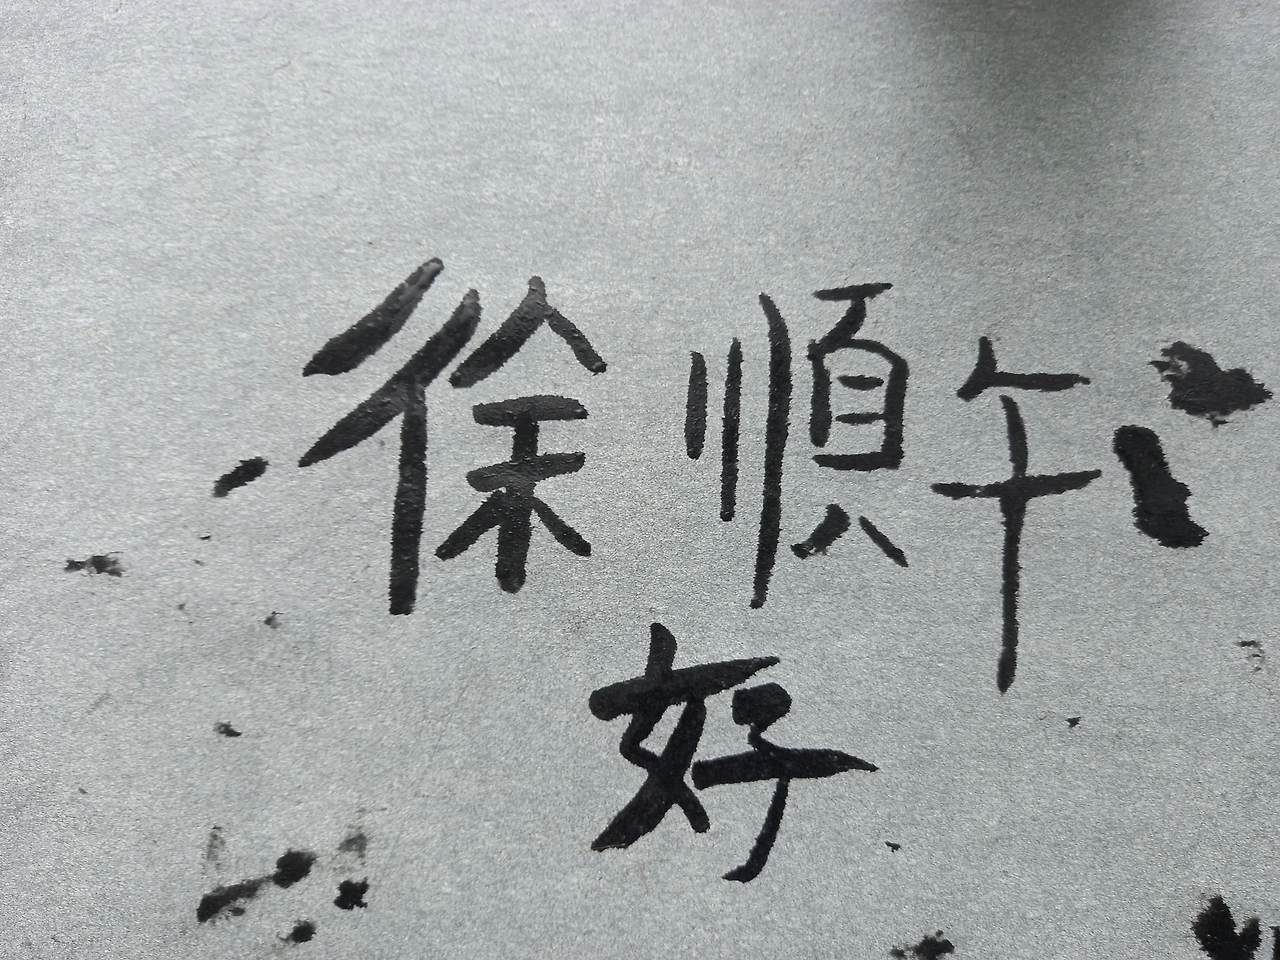 徐順午
好